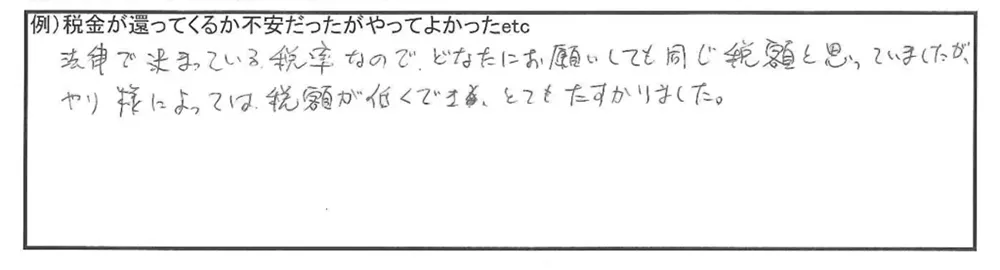 例）税金が還ってくるか不安だったがやってよかったetc
法律で決まっている税率なので、どなたにお願いしても同じ税額と思っていましたが、
やり様によっては、税額が低くでき、とてもたすかりました。